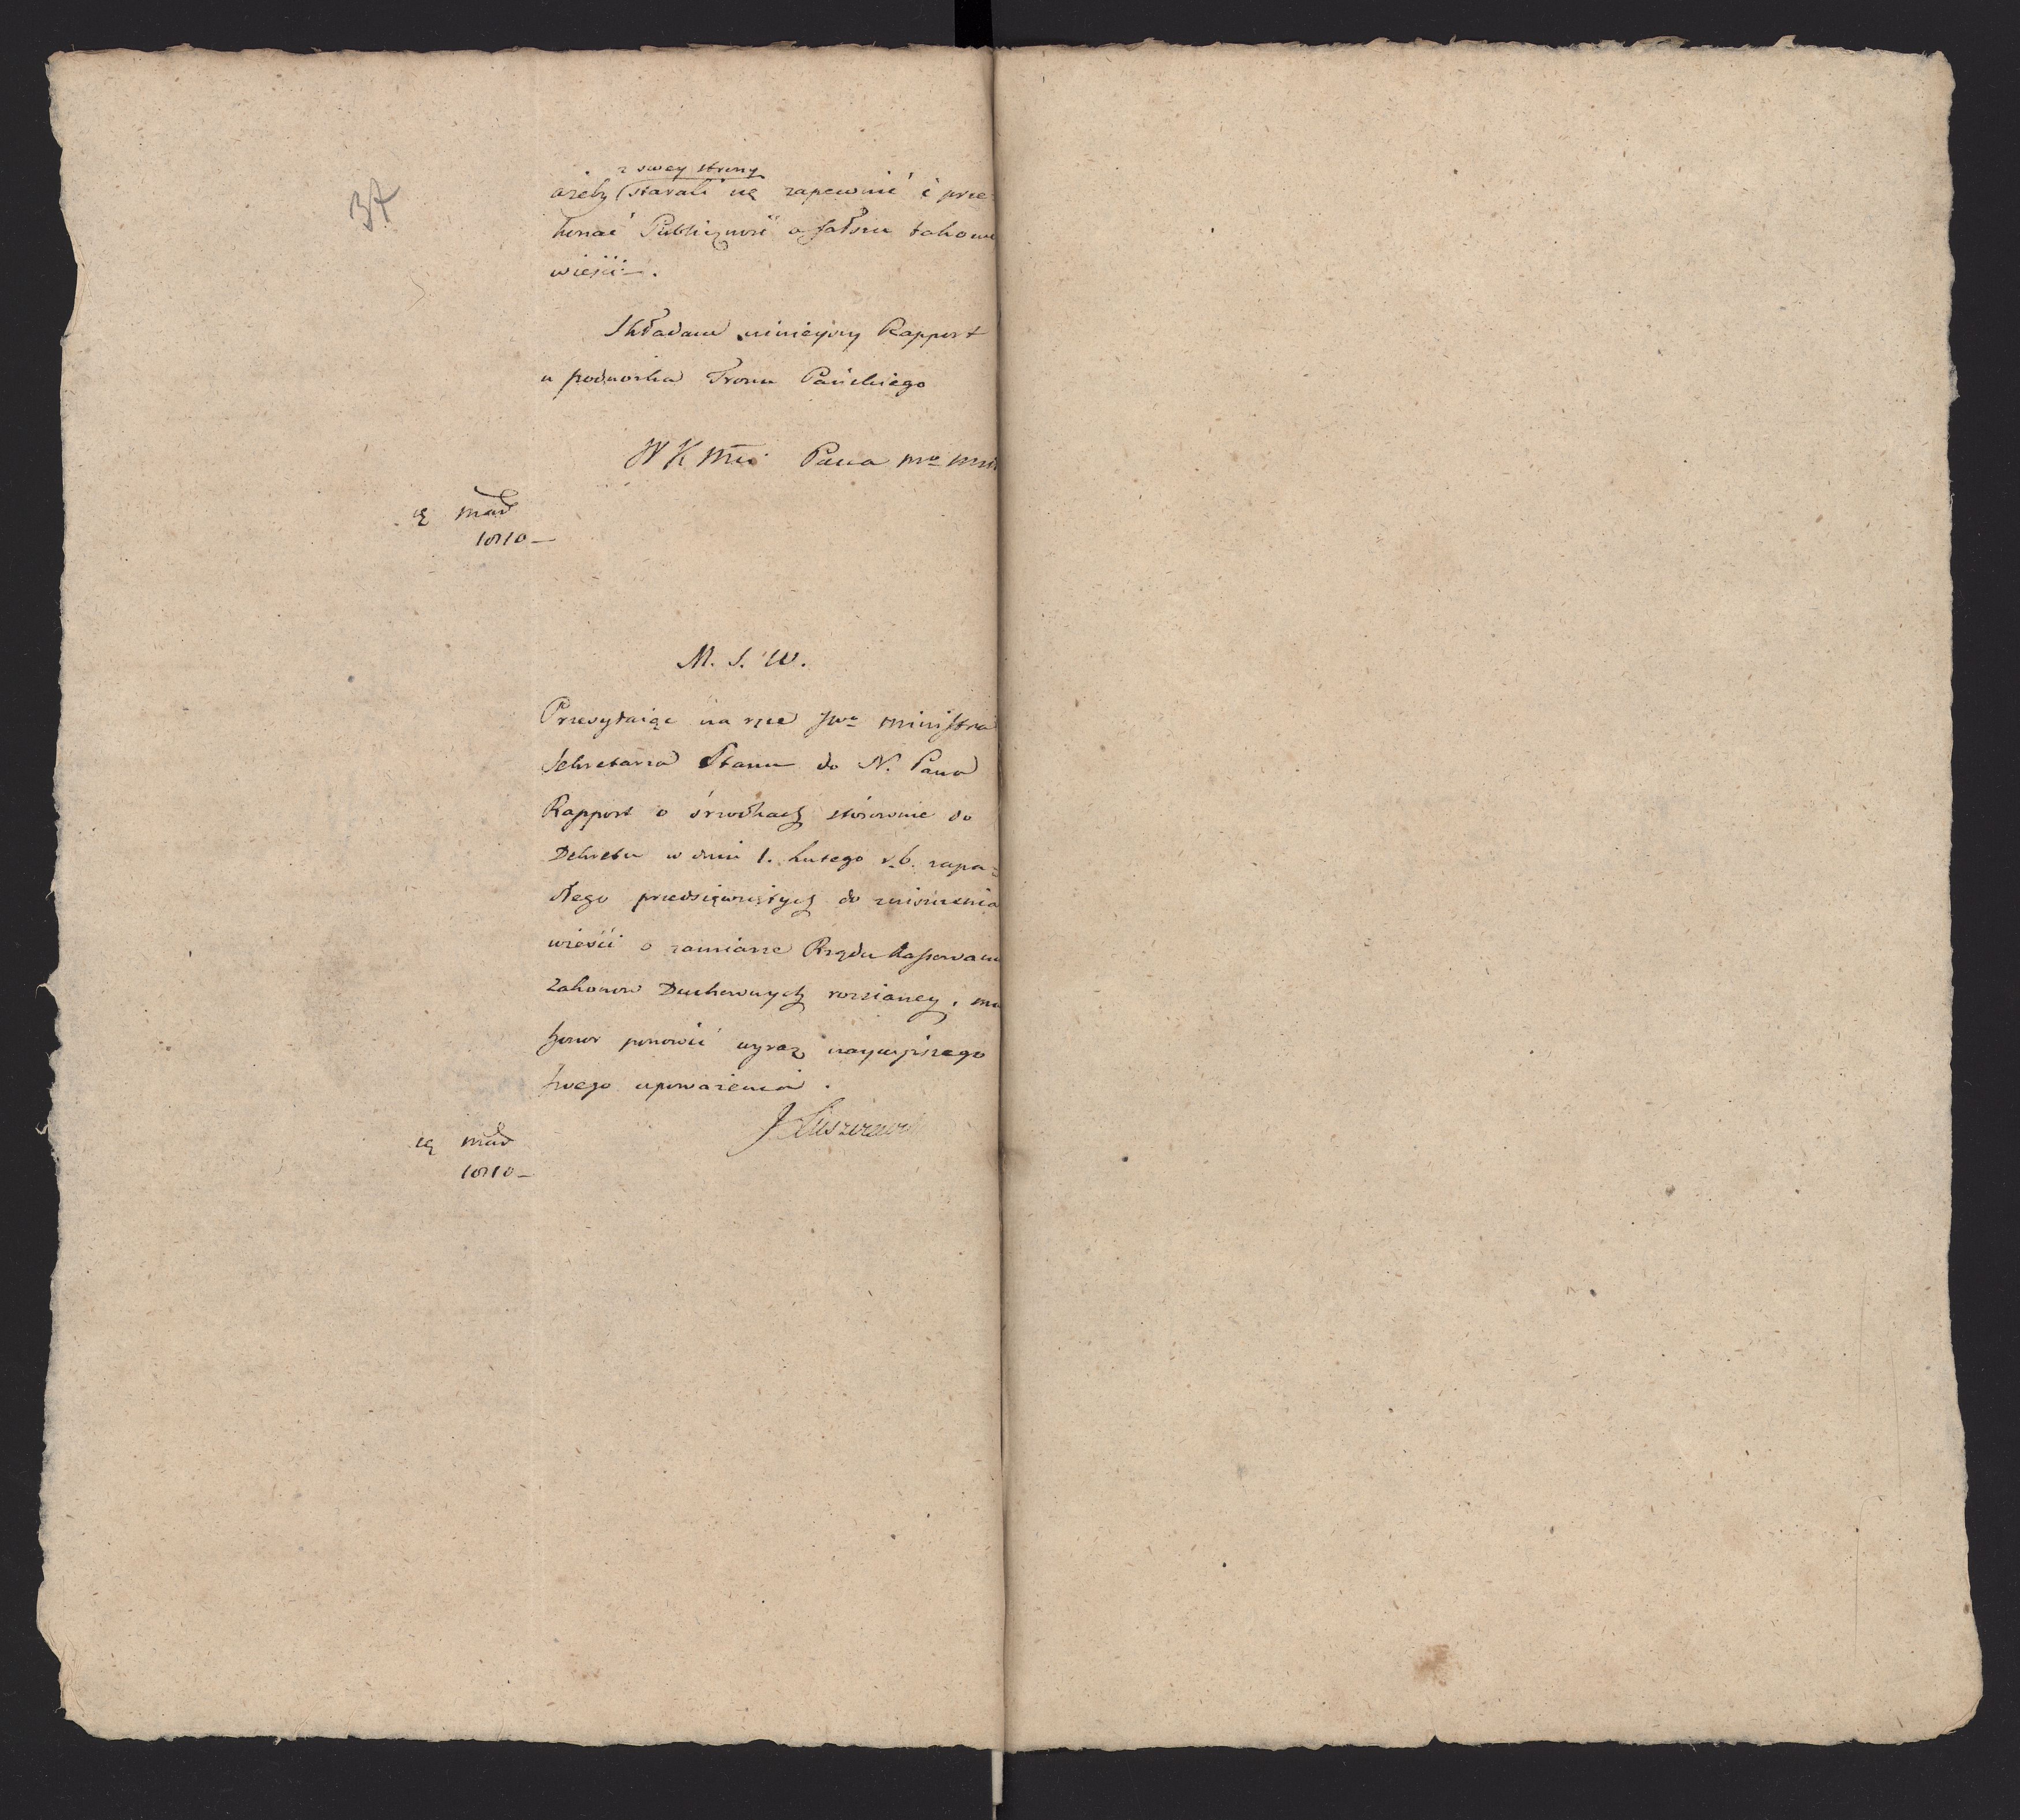 37
z swey strony
ażeby starali się zapewnić i prze-
konać Publiczność o fałszu takowe
wieści.
Składam ninieyszy Rapport
u podnoża Tronu Pańskiego
W K Mci Pana mo
mad
1810
M. S. W.
Przesyłaiąc na ręce JWo Ministra
Sekretarza Stanu do N. Pana
Rapport o śrzodkach stósownie do
Dekretu w dniu 1. Lutego r. b. zapa=
dłego przedsięwziętych do zniszczenia
wieści o zamiarze Rządu kassowani
Zakonow Duchownych rozsianey, ma
honor ponowić wyraz naywyższego
swego upoważenia.
J Łuszczewsk
mad
1810